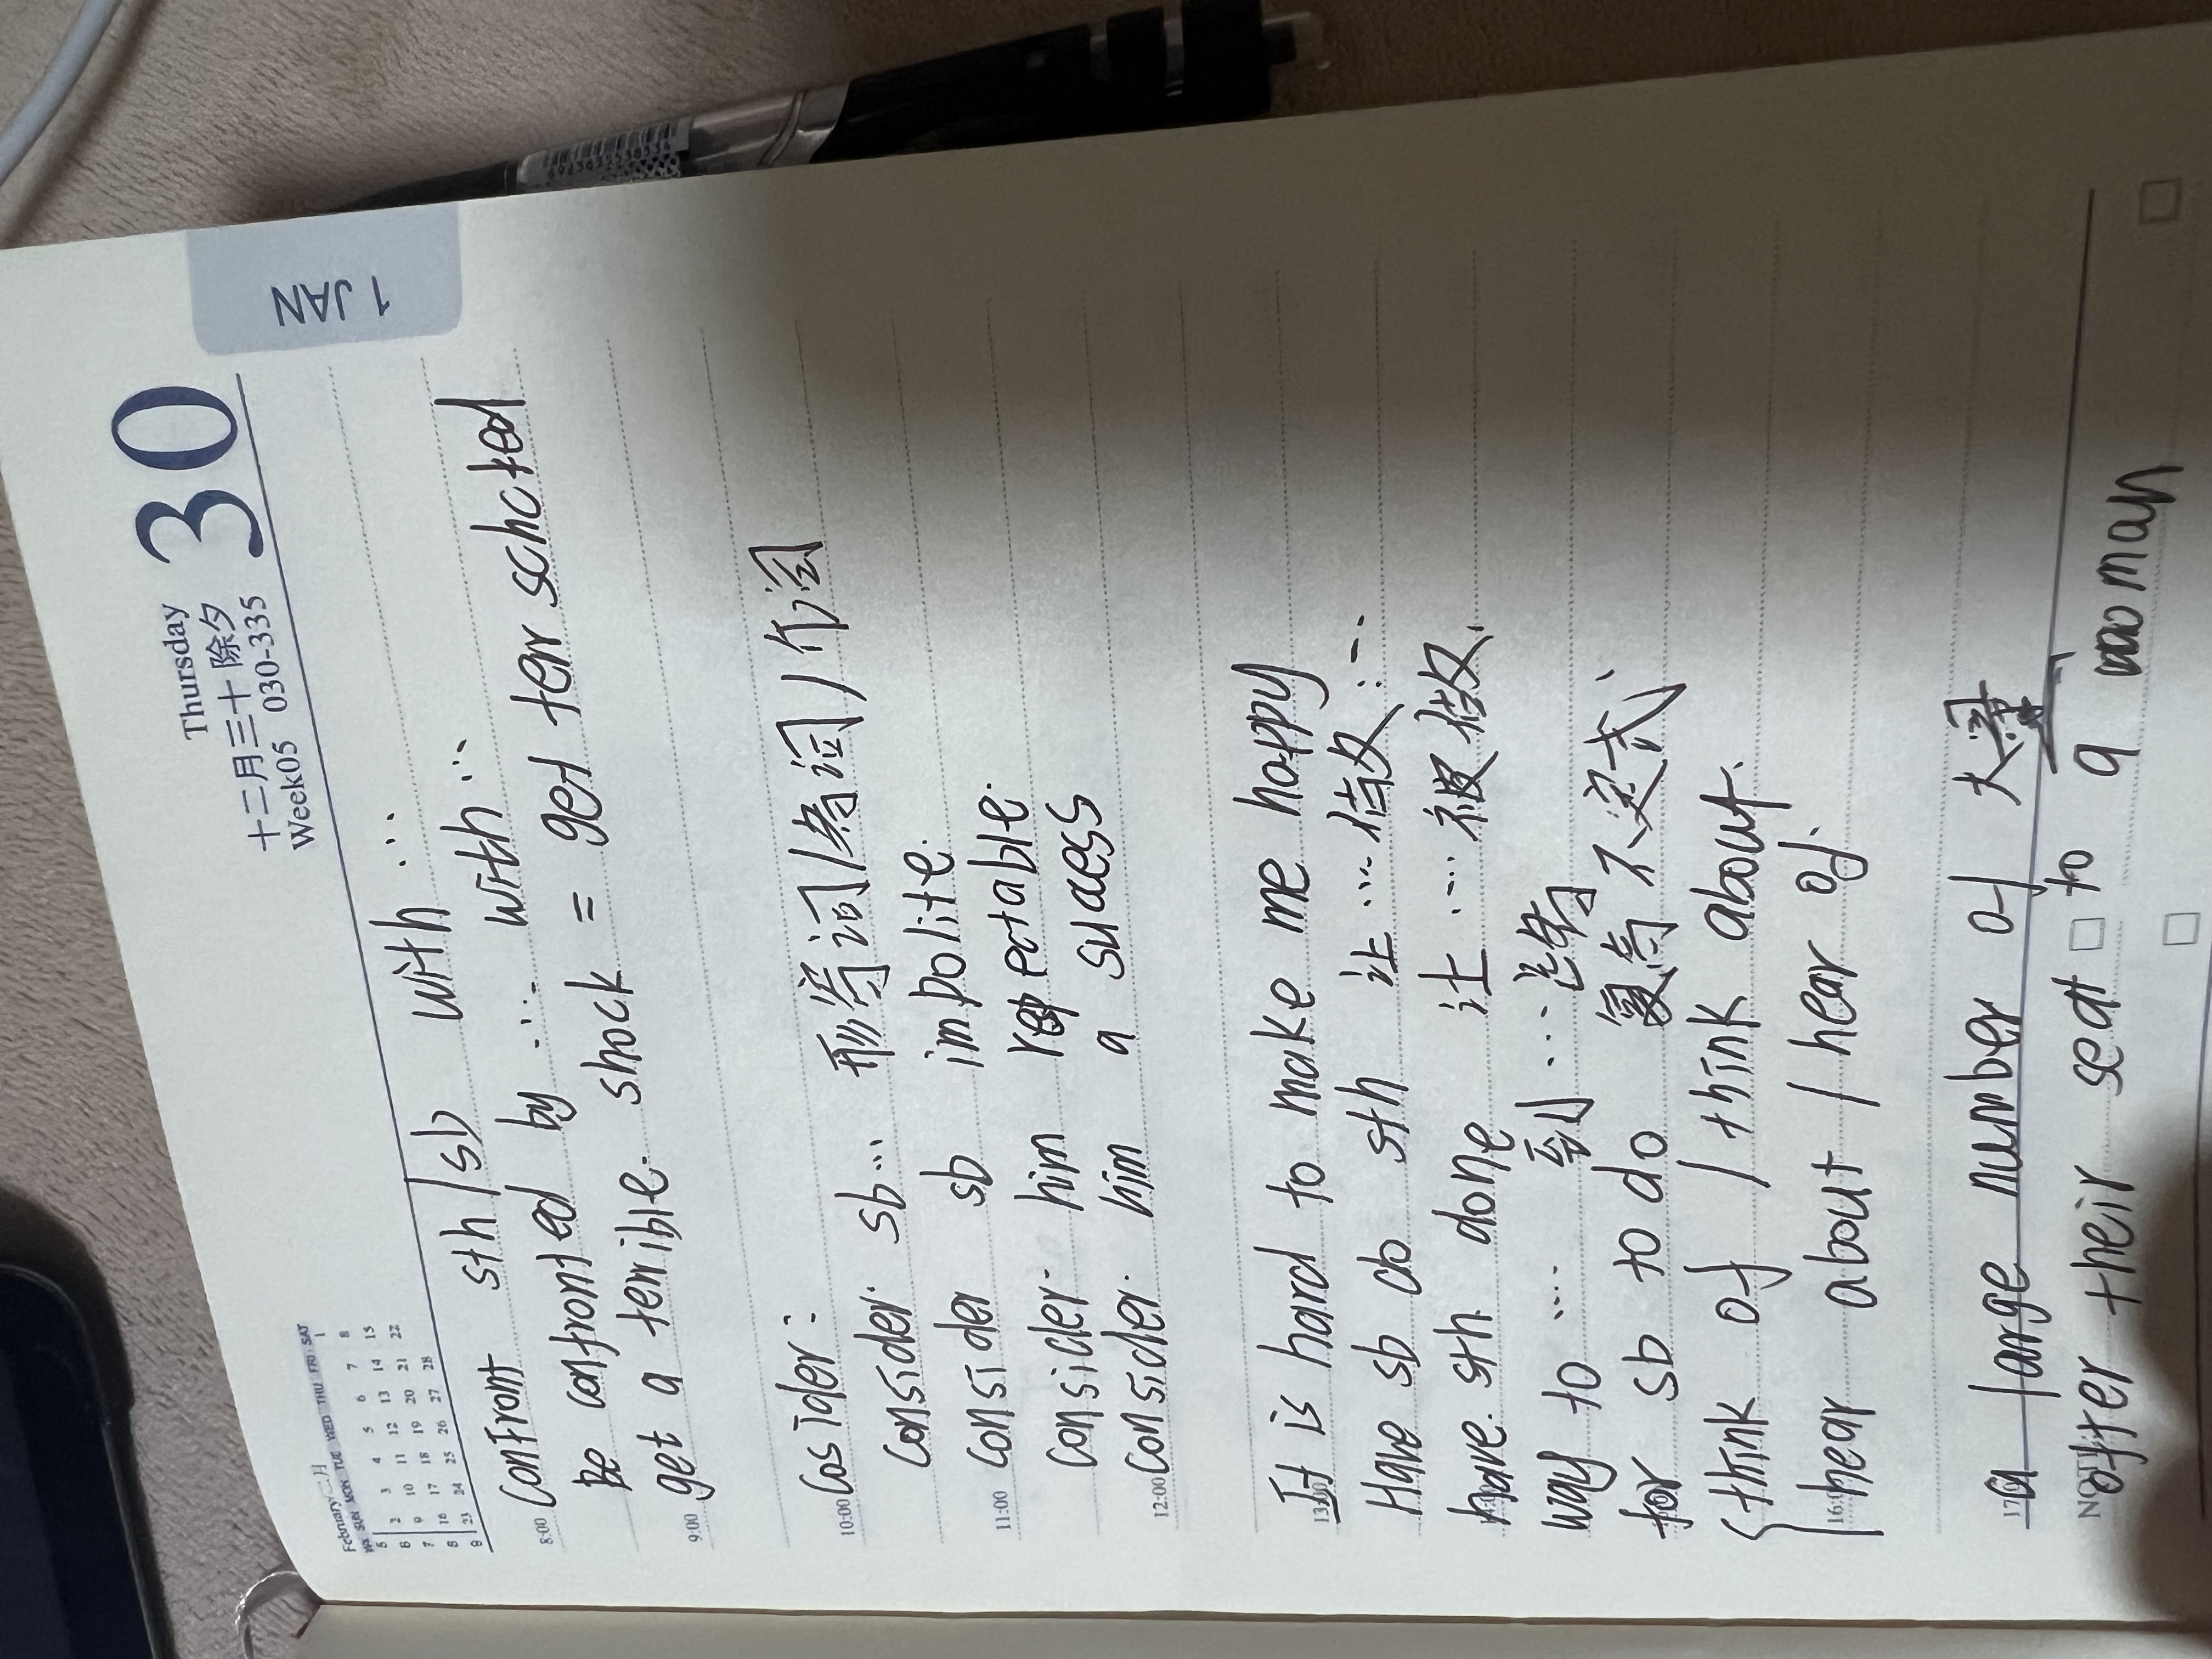 February/二月
WK SUN MON TUE WED THU FRI SAT
5 1
6 2 3 4 5 6 7 8
7 9 10 11 12 13 14 15
8 16 17 18 19 20 21 22
9 23 24 25 26 27 28
Thursday
十二月三十 除夕
Week05 030-335
30
1 JAN
8:00
confront sth / sb with ...
be confronted by ... with ...
9:00
get a terrible shock = get ter schcted
10:00
Cosider:
consider sb... 形容词/名词/介词
11:00
consider sb impolite.
consider him respectable.
12:00
consider him a success
13:00
It is hard to make me happy
Have sb do sth 让...做...
have sth done 让...被做
way to .... 到...
for sb to do 不定式
think of / think about.
16:00
hear about / hear of.
17:00
a large number of 大
NOTE
offer their seat to a woman
6923635538534